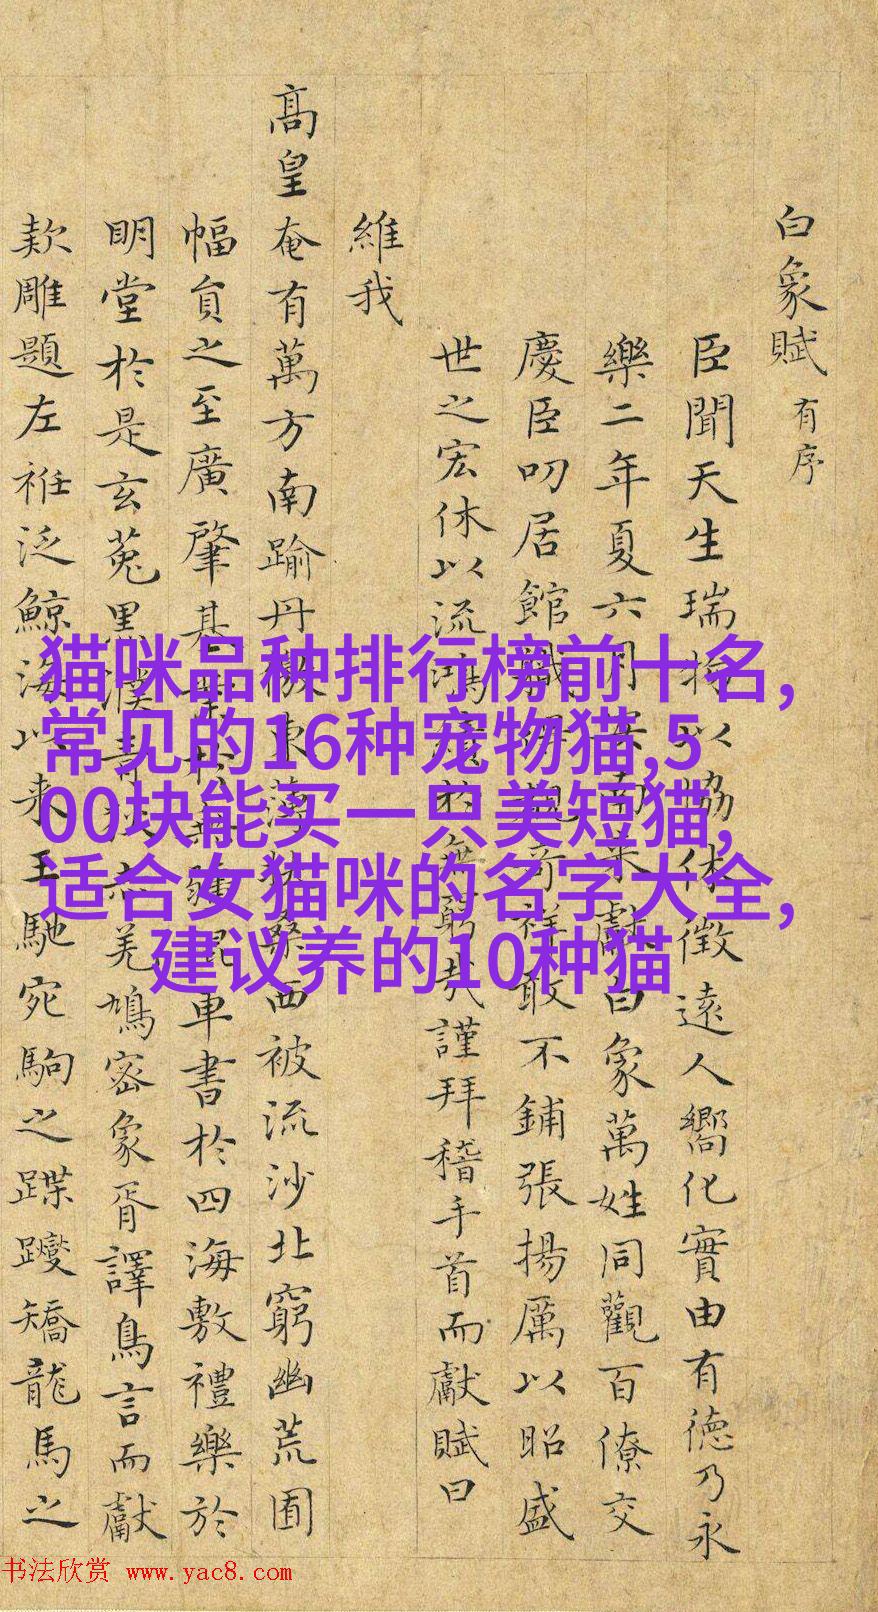 白象賦 有序
臣聞天生瑞物以協休徵遠人嚮化實由有德乃永
樂二年夏六月
來獻白象萬姓同觀百僚交
慶臣叨居館職
奇祥敢不鋪張揚厲以昭盛
世之宏休以流鴻
於無窮哉謹拜稽手首而獻賦曰
維我
高皇奄有萬方南踰丹
東薄
桑西被流沙北窮幽荒囿
幅員之至廣肇基
無疆混車書於四海敷禮樂於
明堂於是玄菟黑
濮青
羌鳩密象胥譯鳥言而獻
欵雕題左袵泛鯨海以来王馳宛駒之蹀躞矯龍馬之
猫咪品种排行榜前十名,
常见的16种宠物猫,5
00块能买一只美短猫,
适合女猫咪的名字大全,
建议养的10种猫
书法欣赏 www.yac8.com